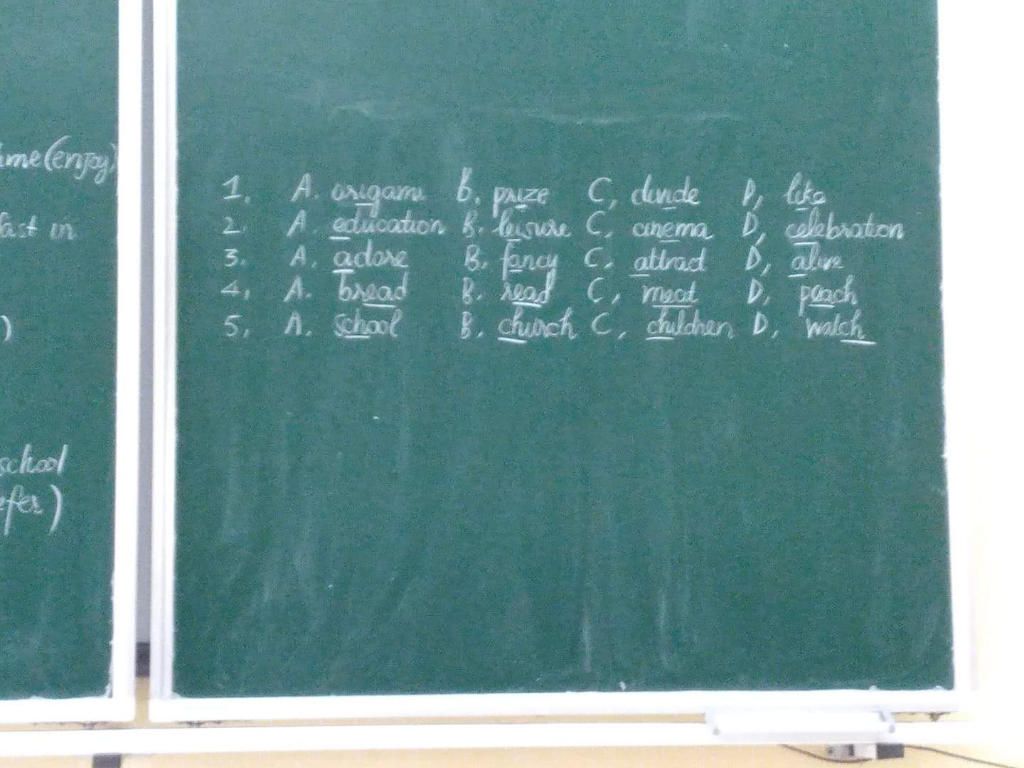 ime (enjoy)
fast in
)
school
efer)
1. A. origami B. prize C, divide D, like
2. A. education B. leisure C, cinema D, celebration
3. A. adore B. fancy C. attract D, alive
4, A. bread B. read C, meat D, peach
5, A. school B. church C, children D, watch